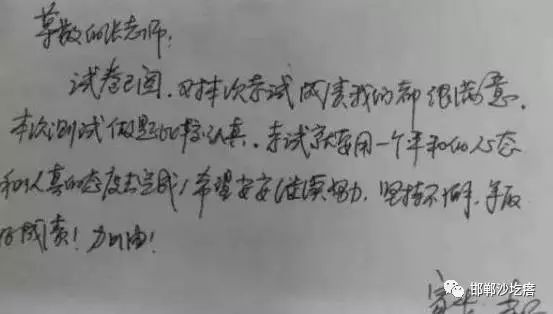 尊敬的张老师:
试卷已阅.对本次考试成责我们都很满意.
本次测试做题比较认真.考试就应用一个平和的心态
和认真的态度去完成!希望安安继续努力.坚持不懈.争取
好成责!加油!
家长:
邯郸沙圪瘩